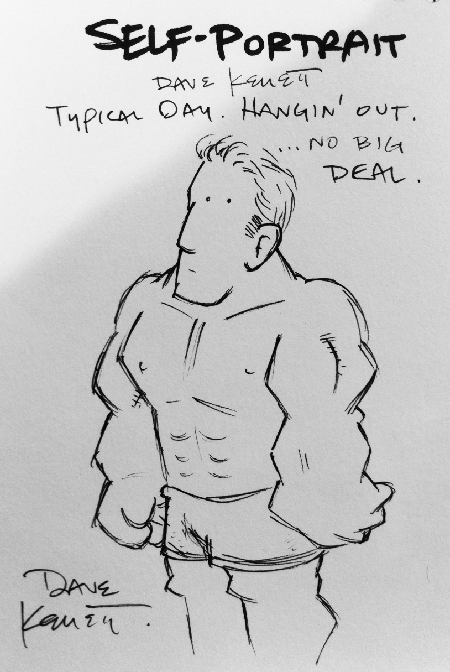 SELF-PORTRAIT
DAVE KELLETT
TYPICAL DAY. HANGIN' OUT.
...NO BIG
DEAL.
DAVE
KELLETT.